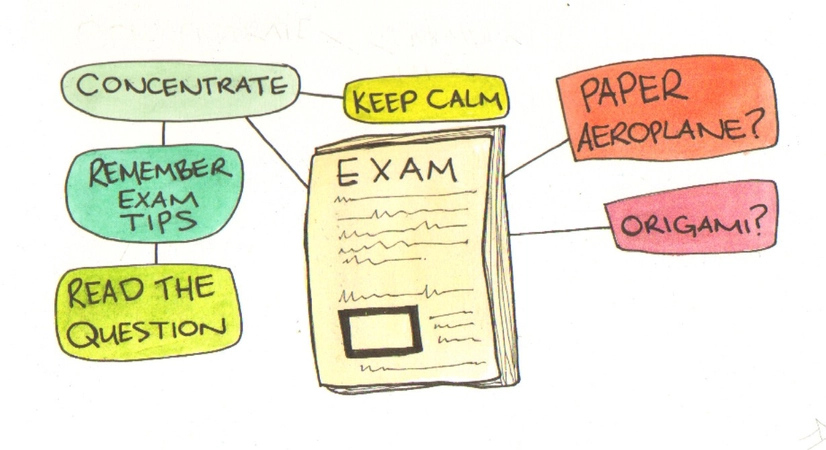 CONCENTRATE
KEEP CALM
REMEMBER
EXAM
TIPS
READ THE
QUESTION
EXAM
PAPER
AEROPLANE?
ORIGAMI?